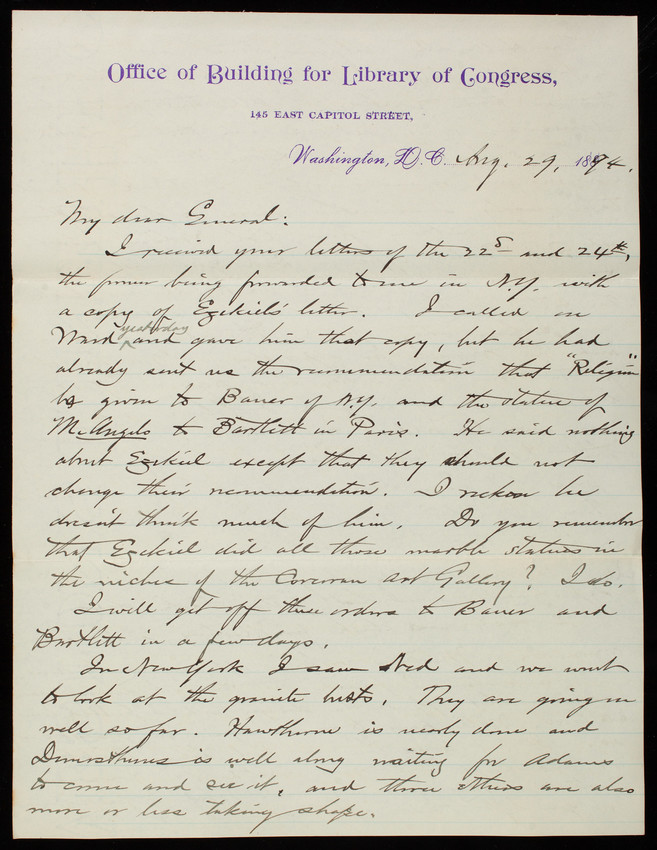 Office of Building for Library of Congress,
145 EAST CAPITOL STREET,
Washington, D. C. Aug. 29, 1894.
My dear General:
I received your letters of the 22d and 24th,
the former being forwarded to me in N.Y. with
a copy of Ezekiel's letter. I called on
yesterday
Ward and gave him that copy, but he had
already sent us the recommendation that "Religion"
be given to Bauer of N.Y. and the statue of
M. Angelo to Bartlett in Paris. He said nothing
about Ezekiel except that they should not
change their recommendation. I reckon he
doesn't think much of him. Do you remember
that Ezekiel did all those marble statues in
the niches of the Corcoran Art Gallery? I do.
I will get off these orders to Bauer and
Bartlett in a few days.
In New York I saw Ned and we went
to look at the granite busts. They are going on
well so far. Hawthorne is nearly done and
Demosthenes is well along waiting for Adams
to come and see it, and three others are also
more or less taking shape.